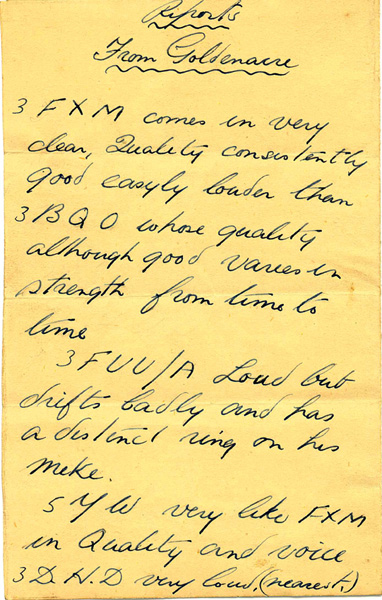 Reports
From Goldenacre
3 FXM comes in very
clear, Quality consistently
good easyly louder than
3 BQO whose quality
although good varies in
strength from time to
time
3 FUU/A Loud but
drifts badly and has
a distinct ring on his
meke.
5 YW very like FXM
in Quality and voice
3 D.H.D very loud. (nearest.)